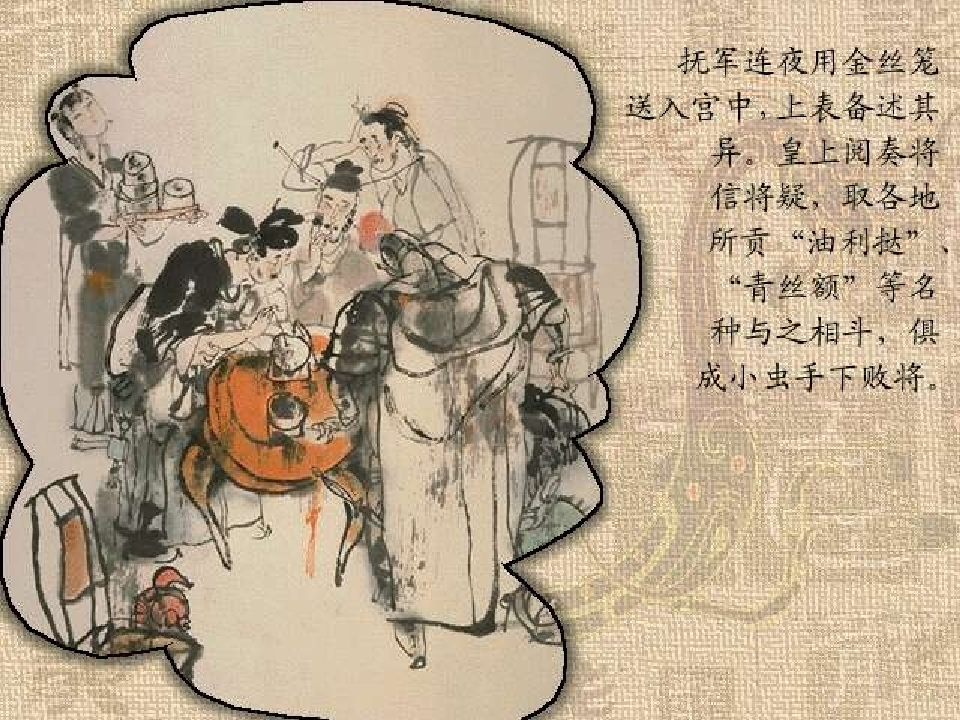 抚军连夜用金丝笼
送入宫中，上表备述其
异。皇上阅奏将
信将疑，取各地
所贡“油利挞”、
“青丝额”等名
种与之相斗，俱
成小虫手下败将。